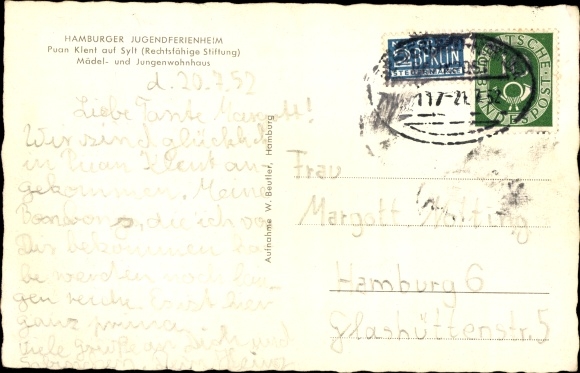 HAMBURGER JUGENDFERIENHEIM
Puan Klent auf Sylt (Rechtsfähige Stiftung)
Mädel- und Jungenwohnhaus
d. 20.7.52
Liebe Tante
Wir sind glücklich
in Puan Klent an-
gekommen. Meine
Bonbons, die ich von
Dir bekommen ha-
be werden noch lan-
gen reiche. Es ist hier
ganz prima.
Viele grüße an Dich und
Aufnahme W. Beutler, Hamburg
2 BERLIN
STEUERMARKE
DEUTSCHE BUNDESPOST
Frau
Margott
Hamburg 6
Glashüttenstr. 5